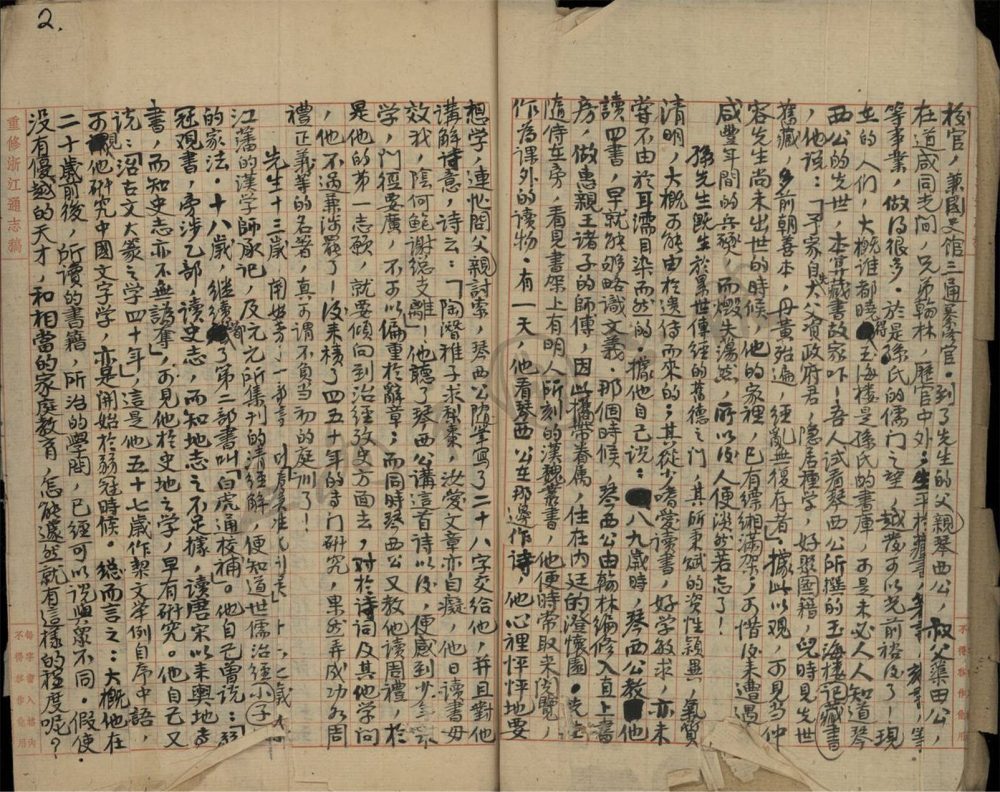 2.
校官，兼國史館三通纂官。到了先生的父親琴西公，叔父蕖田公，
在道咸同光間，兄弟翰林，歷官中外；生平於藏書、等
等事業，做得很多。於是孫氏的儒門之望，越發可以光前裕後了！現
在的人們，大概誰都曉得玉海樓是孫氏的書庫，而是未必人人知道琴
西公的先世，本宜藏書故家吓！吾人試看琴西公所撰的玉海樓記藏書
，他說：「予家自大父資政府君，隱居種學，好聚圖籍，兒時見先世
舊藏，多前朝善本，丹黃殆遍，經亂無復存者」。據此以觀，可見當仲
容先生尚未出世的時候，他的家裡，已有縹緗滿架；可惜後來遭遇
咸豐年間的兵燹，而燬失蕩然，所以後人便淡然若忘了！
孫先生既生於累世傳經的舊德之門，其所秉賦的資性穎異，氣質
清明，大概可能由於遺傳而來的；其從小嗜愛讀書，好學敏求，亦未
嘗不由於耳濡目染而然的。據他自己說：八九歲時，琴西公教他
讀四書，早就能夠略識文義。那個時候，琴西公由翰林編修入直上書
房，做惠親王諸子的師傅，因此攜帶眷属，住在內廷的澄懷園。先生
隨侍在旁，看見書架上有明人所刻的漢魏叢書，他便時常取來流覽，
作為課外的讀物。有一天，他看琴西公在那邊作詩，他心裡怦怦地要
想學，連忙問父親討索，琴西公隨筆寫了二十八字交給他，并且對他
講解詩意，詩云：「陶潛稚子求梨棗，汝愛文章亦自癡，他日讀書毋
效我，陰何鮑謝總支離」！他聽了琴西公講這首詩以後，便感到少年求
學，門徑要廣，不可以偏重於辭章；而同時琴西公又教他讀周禮，於
是他的第一志願，就要傾向到治經攷史方面去，對於詩詞及其他學問
，他不過兼涉罷了！後來積了四五十年的專門研究，果然弄成功為周
禮正義等的名著，真可謂不負當初的庭訓了！
先生十三歲
江藩的漢學師承記，及阮元所集刊的清經解，便知道世儒治經小子
的家法。十八歲，繼續了第二部書叫「白虎通校補」。他自己曾說：「弱
冠觀書，旁涉乙部，讀史志，而知地志之不足據，讀唐宋以來輿地專
書，而知史志亦不無譌奪」，可見他於史地之學，早有研究。他自己又
說：「治古文大篆之學四十年」，這是他五十七歲作契文舉例自序中語，
可見他研究中國文字學，亦是開始於弱冠時候。總而言之：大概他在
二十歲前後，所讀的書籍，所治的學問，已經可以說與衆不同。假使
没有優越的天才，和相當的家庭教育，怎能遽然就有這樣的程度呢？
重修浙江通志稿
每字書入格內
不得移作他用